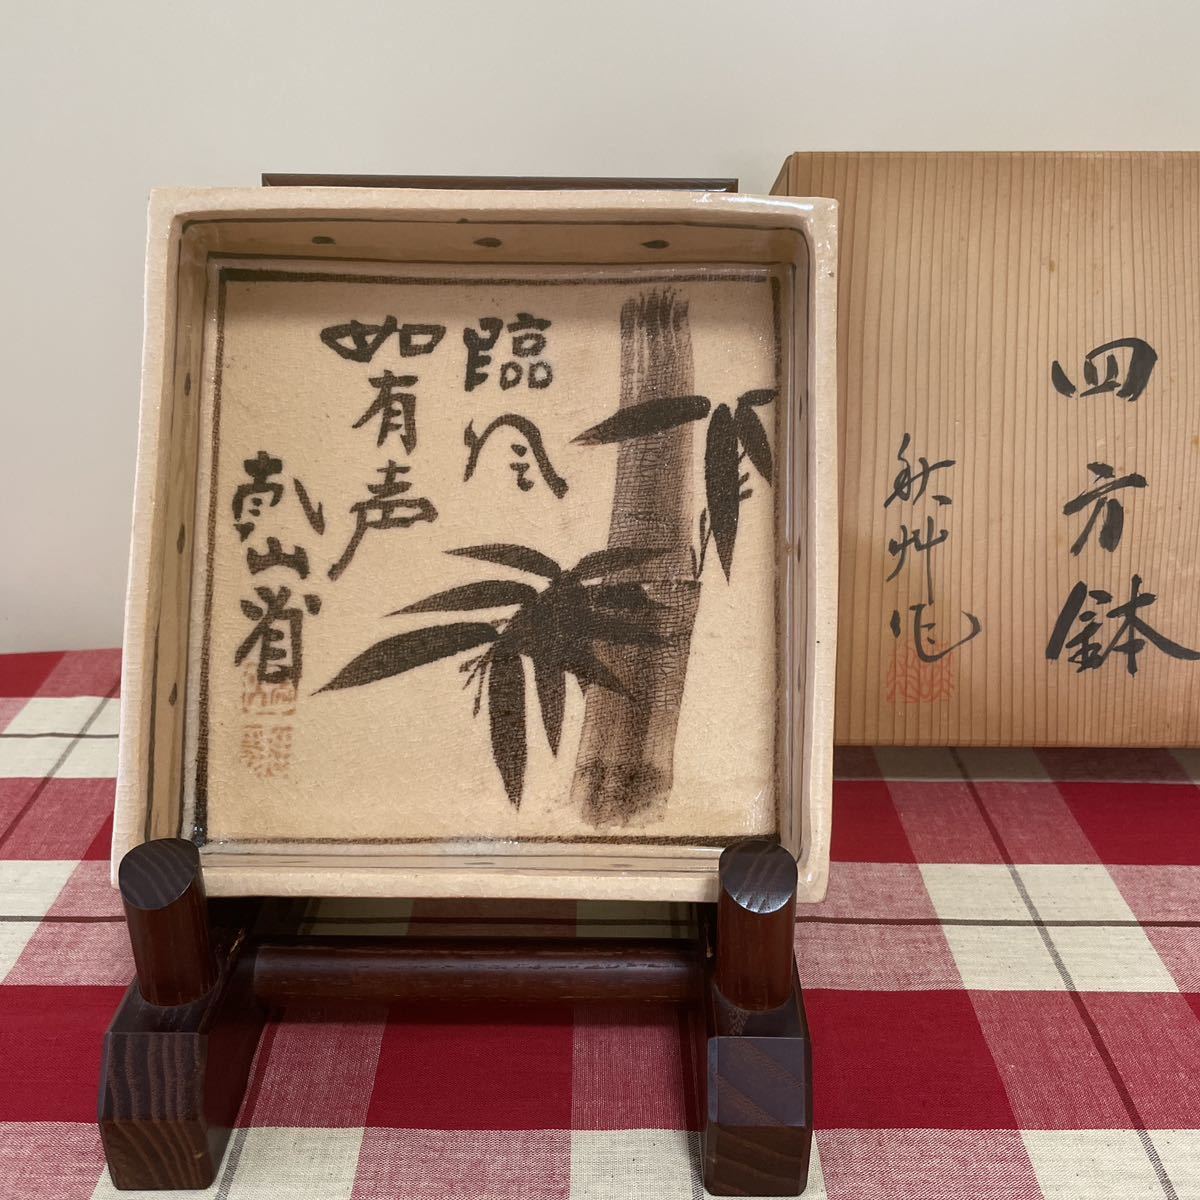 臨風
如有声
乾山省
四方鉢
秋艸作